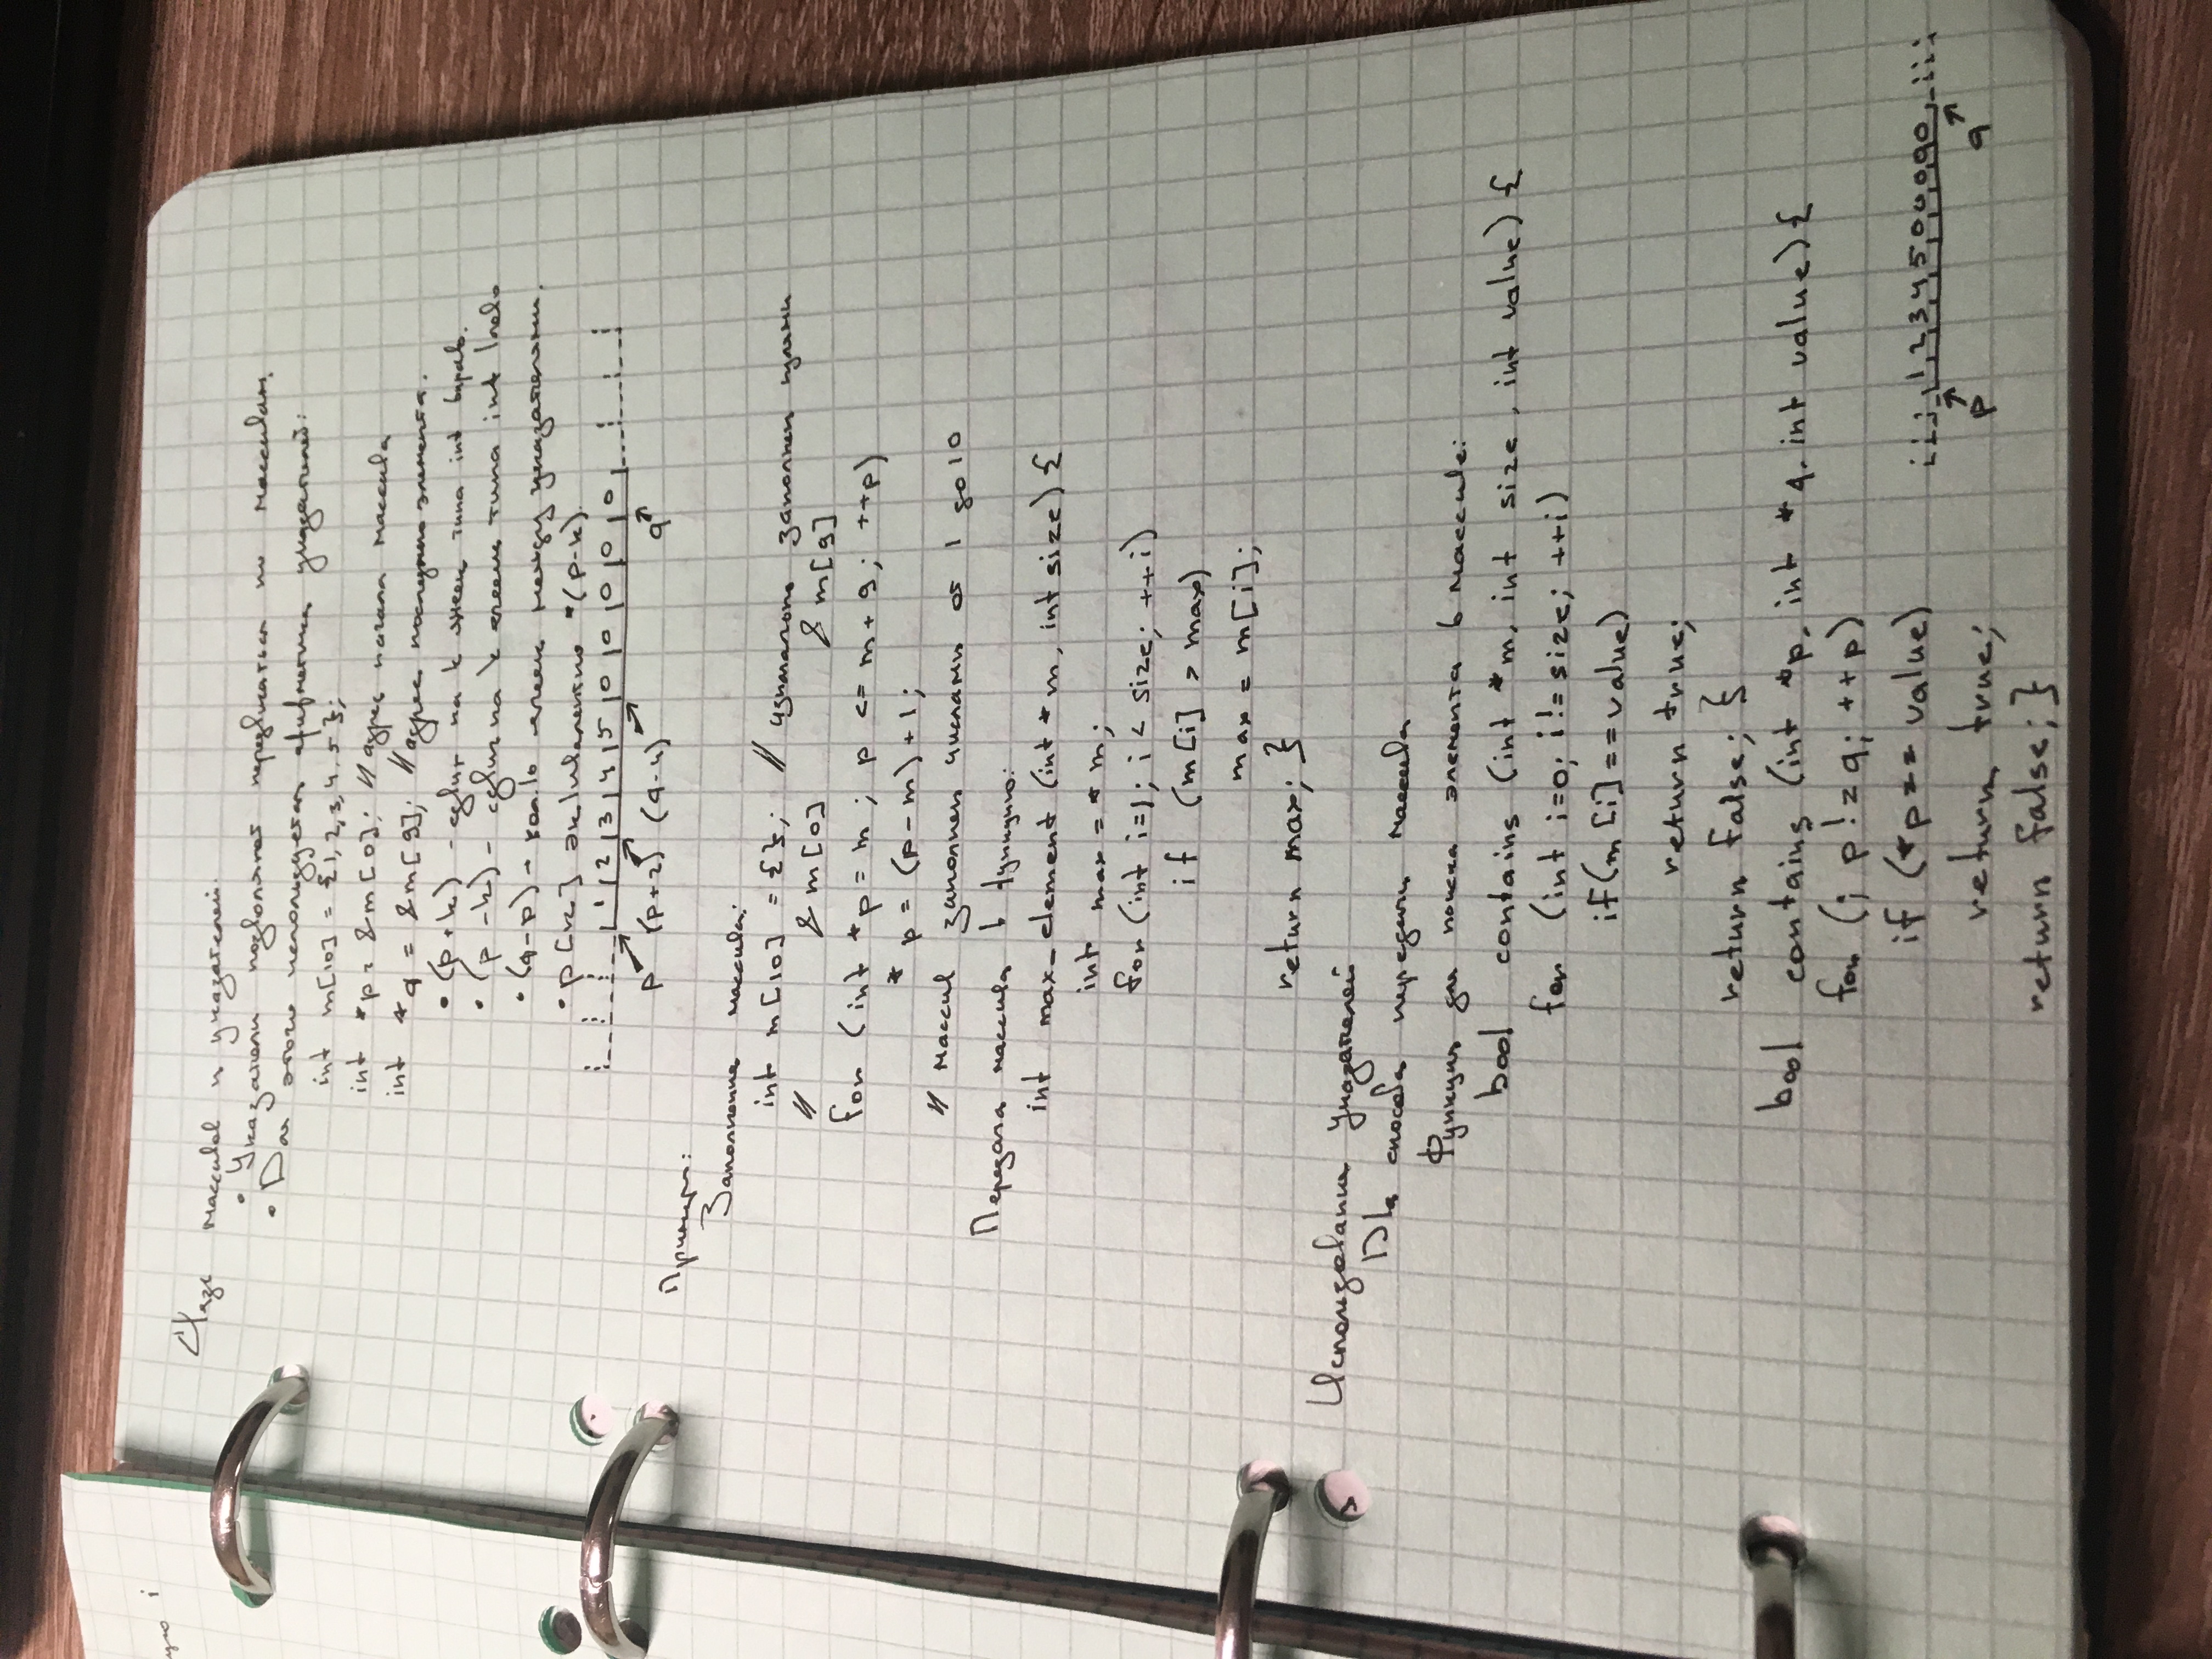 i
Связь массивов и указателей.
• Указатели позволяют передвигаться по массивам.
• Для этого используется арифметика указателей:
int m[10] = {1, 2, 3, 4, 5};
int *p = &m[0]; // адрес начала массива
int *q = &m[9]; // адрес последнего элемента.
• (p+k) - сдвиг на k ячеек типа int вправо.
• (p-k) - сдвиг на k ячеек типа int влево
• (q-p) - кол-во ячеек между указателями.
• p[k] эквивалентно *(p-k).
1 2 3 4 5 0 0 0 0 0
p (p+2) (q-4) q
Примеры:
Заполнение массива:
int m[10] = {}; // изначально заполнен нулями
// &m[0] &m[9]
for (int *p = m; p <= m+9; ++p)
*p = (p-m)+1;
// массив заполнен числами от 1 до 10
Передача массива в функцию:
int max_element (int *m, int size) {
int max = *m;
for (int i=1; i < size; ++i)
if (m[i] > max)
max = m[i];
return max; }
Использование указателей
Два способа передачи массива
Функция для поиска элемента в массиве:
bool contains (int *m, int size, int value) {
for (int i=0; i != size; ++i)
if (m[i] == value)
return true;
return false; }
bool contains (int *p, int *q, int value) {
for (; p != q; ++p)
if (*p == value)
1 2 3 4 5 0 0 0 0 0
return true;
p q
return false; }